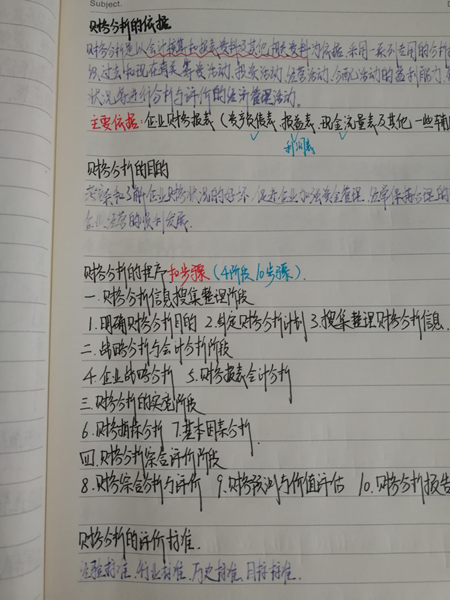 Subject.
财务分析的依据
财务分析是以会计核算和报表资料及其他相关资料为依据,采用一系列专用的分析
过去和现在有关筹资活动、投资活动、经营活动、分配活动的盈利能力
状况等进行分析与评价的经济管理活动。
主要依据:企业财务报表(资产负债表、损益表、现金流量表及其他一些辅
利润表
财务分析的目的
考察和了解企业财务状况的好坏
企业经营的顺利发展.
财务分析的程序和步骤(4阶段10步骤).
一.财务分析信息搜集整理阶段
1.明确财务分析目的 2.制定财务分析计划 3.搜集整理财务分析信息.
二.战略分析与会计分析阶段
4.企业战略分析 5.财务报表会计分析
三.财务分析的实施阶段
6.财务指标分析 7.基本因素分析.
四.财务分析综合评价阶段
8.财务综合分析与评价 9.财务预测与价值评估 10.财务分析报告
财务分析的评价标准.
经验标准、行业标准、历史标准、目标标准.